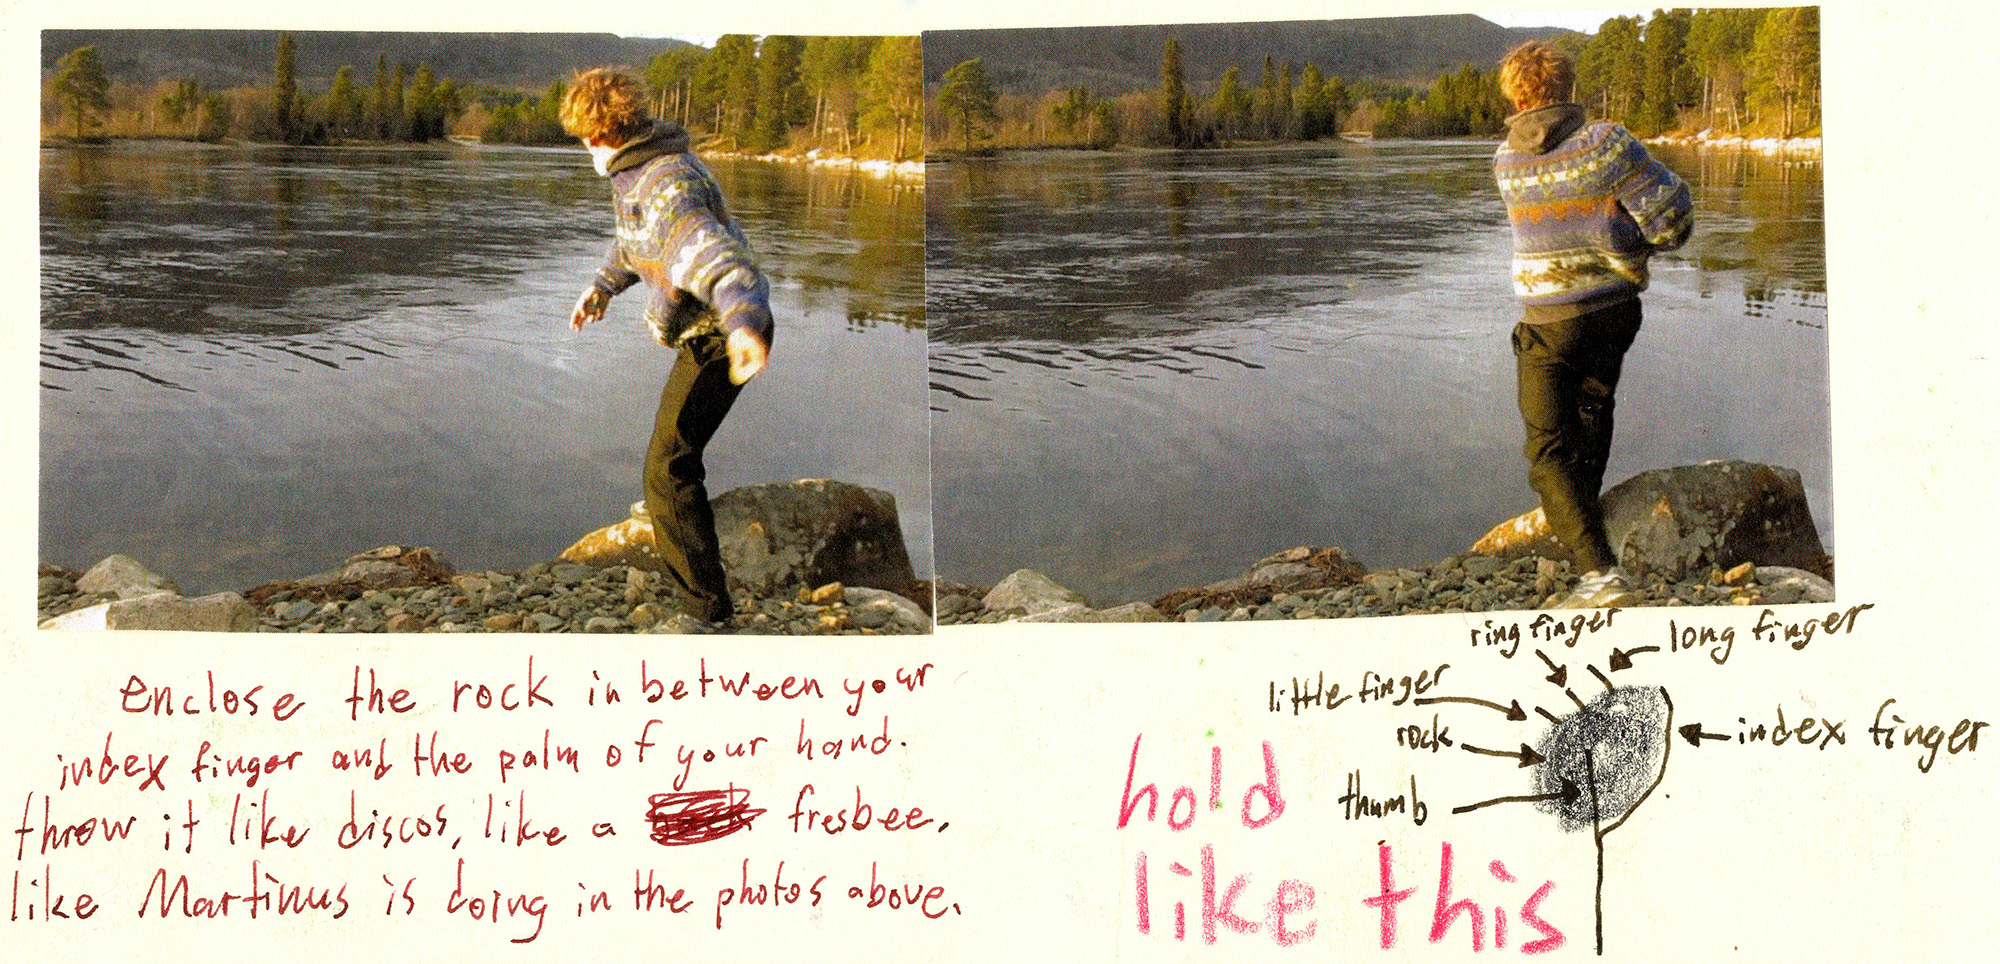 enclose the rock in between your
index finger and the palm of your hand.
throw it like discos, like a fresbee,
like Martinus is doing in the photos above.
ring finger
long finger
little finger
rock
index finger
thumb
hold
like this